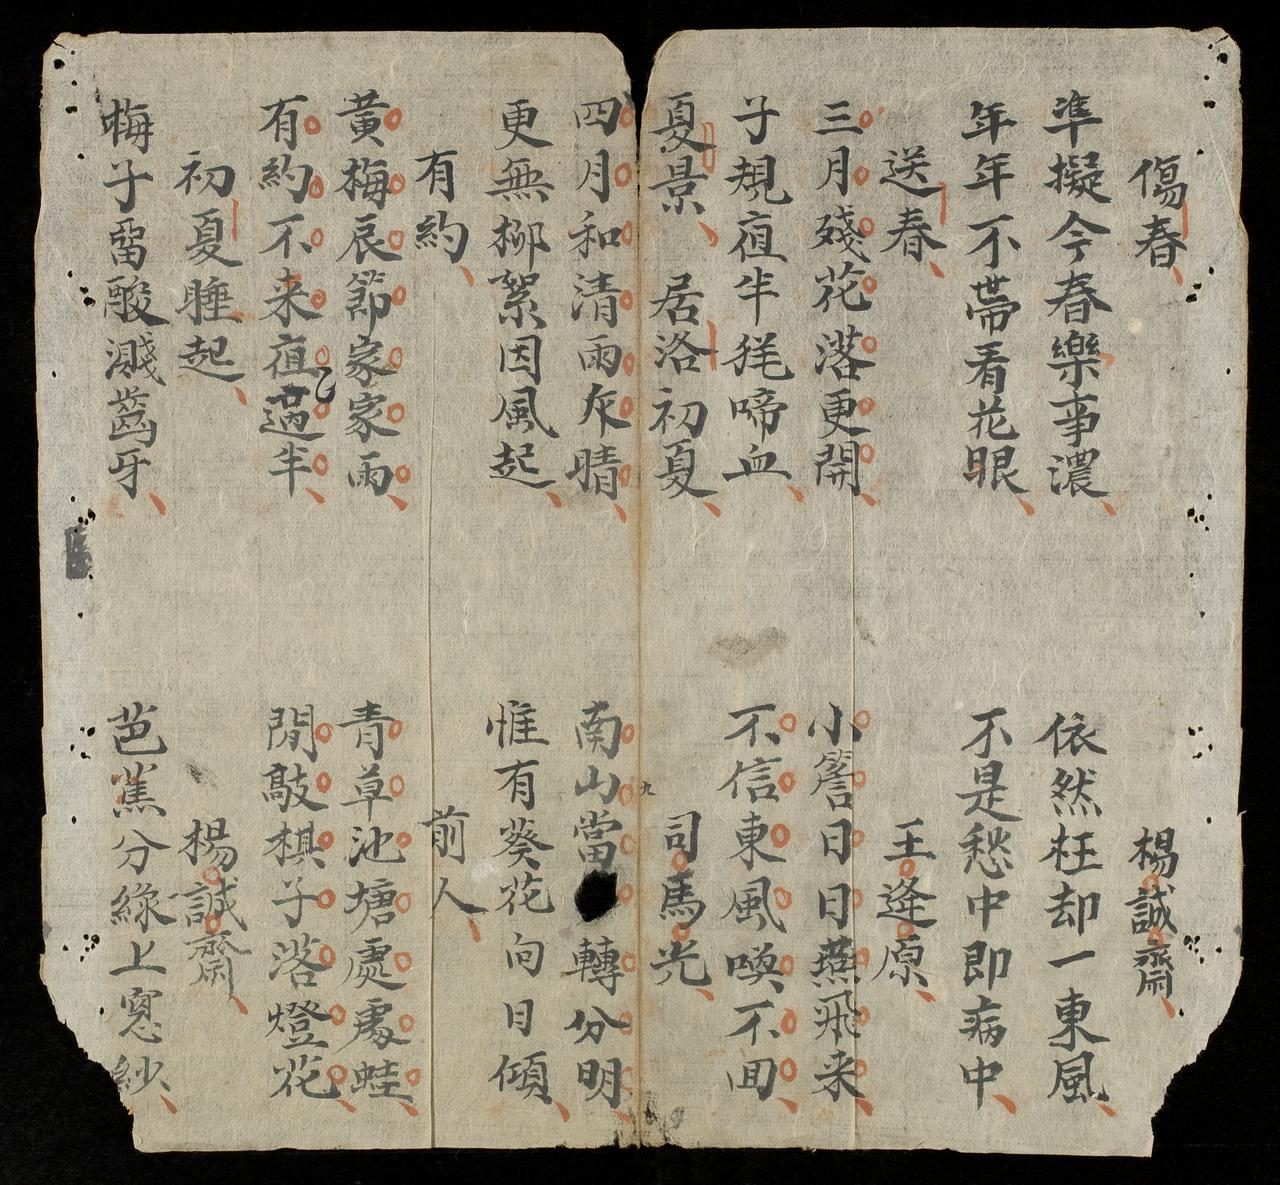 傷春 楊誠齋
準擬今春樂事濃 依然枉却一東風
年年不帶看花眼 不是愁中即病中
送春 王逢原
三月殘花落更開 小簷日日燕飛来
子規夜半猶啼血 不信東風喚不回
夏景 居洛初夏 司馬光
四月和清雨乍晴 南山當 轉分明
更無柳絮因風起 惟有葵花向日傾
有約 前人
黃梅辰節家家雨 青草池塘處處蛙
有約不来夜過半 閒敲棋子落燈花
初夏睡起 楊誠齋
梅子留酸濺齒牙 芭蕉分綠上窓紗
九